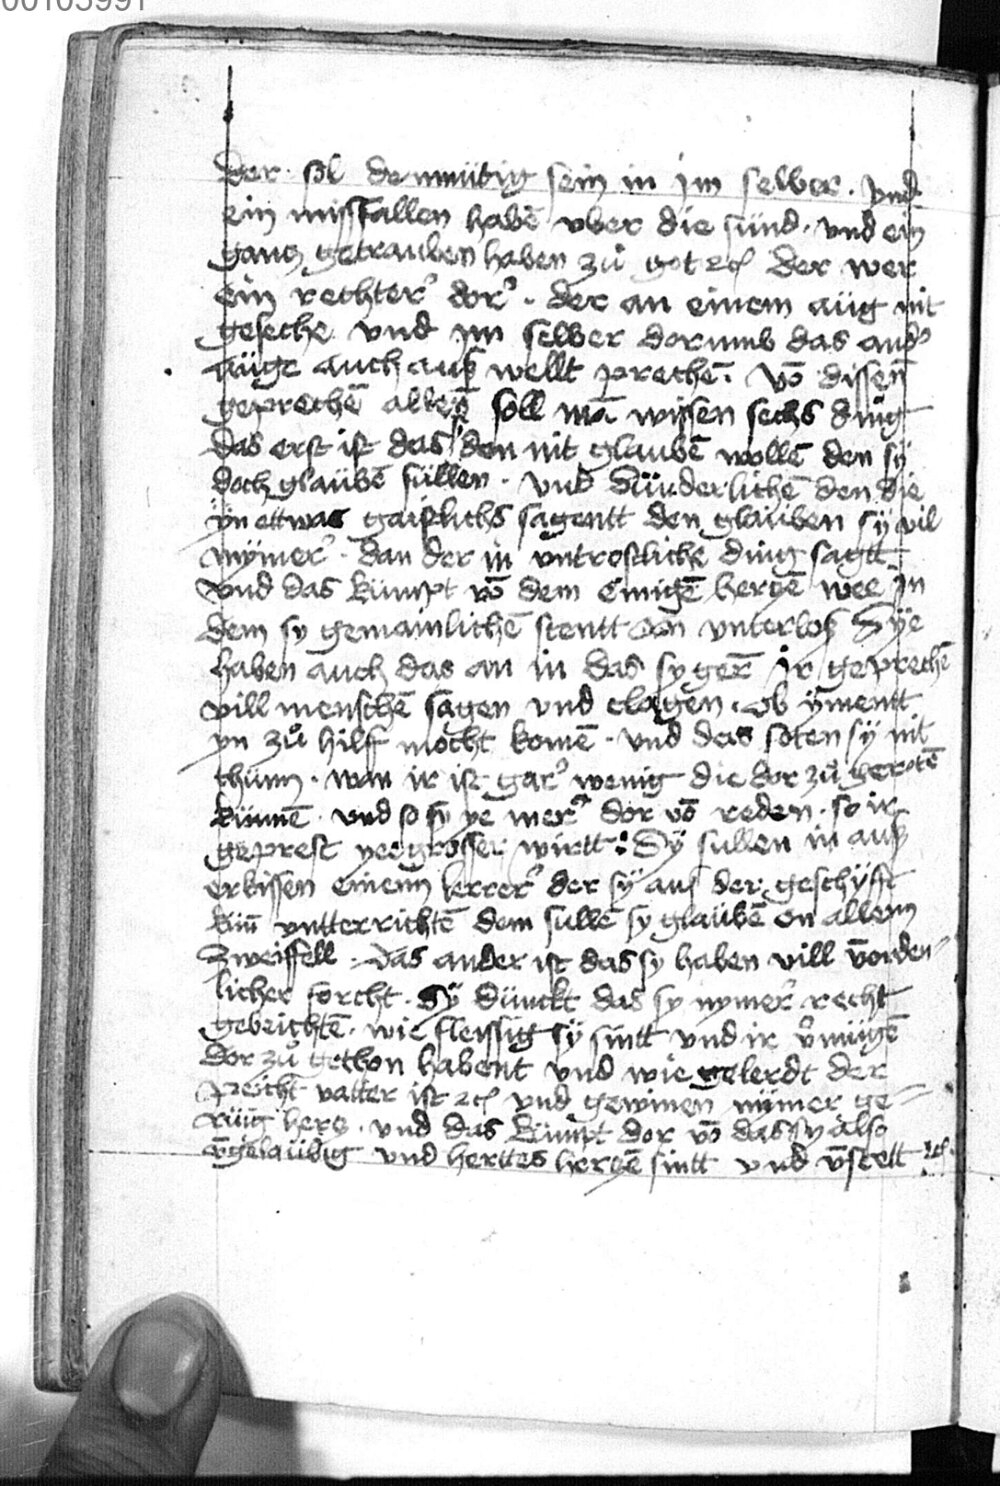 00103991
der · sol demmütig sein in im selber · vnd
ein missfallen habē vber die sünd · vnd ein
gancz getrauben haben zů got ꝛc der wer
ein rechter dor · der an einem aüg nit
geseche vnd im selber dorumb das and
aüge auch auß wellt prechē · võ dissen
geprechē allen soll mā wissen sechs ding
das erst ist das den nit glaubē wollē den sÿ
doch glaubē süllen · vnd sünderlichē den die
yn ettwas gaistlichs sagentt den glauben sÿ vil
mÿmer · dan der in vntrostliche ding sagtt
vnd das kümpt võ dem ewigē herczē wee in
dem sy gemainlichē stentt on vnterloß Sÿe
haben auch das an in das sy gerē ir geprechē
vill menschē sagen vnd clagen · ob ÿmentt
yn zů hilff mocht komē · vnd das soten sÿ nit
thunn · wan ir ist gar wenig die dor zů geratē
künnē · vnd so sy ye mer dor võ reden · so ir
geprest yee grosser wirtt : Sÿ sullen in auß
erkissen einenn lerrer der sÿ auß der geschÿfft
kün vntterrichtē dem sullē sy glaubē on allenn
zweiffell · das ander ist das sy haben vill vorden
licher forcht · Sÿ dünckt das sy nymer recht
gebeichtē · wie fleissig sÿ sintt vnd ir vmügē
dor zů gethon habent vnd wie gelerdt der
peicht vatter ist ꝛc vnd gewinen nümer ge
rüig hercz · vnd das kümpt dor võ das sy also
vgelaübig vnd herttes herczē sintt vnd vstelt ꝛc